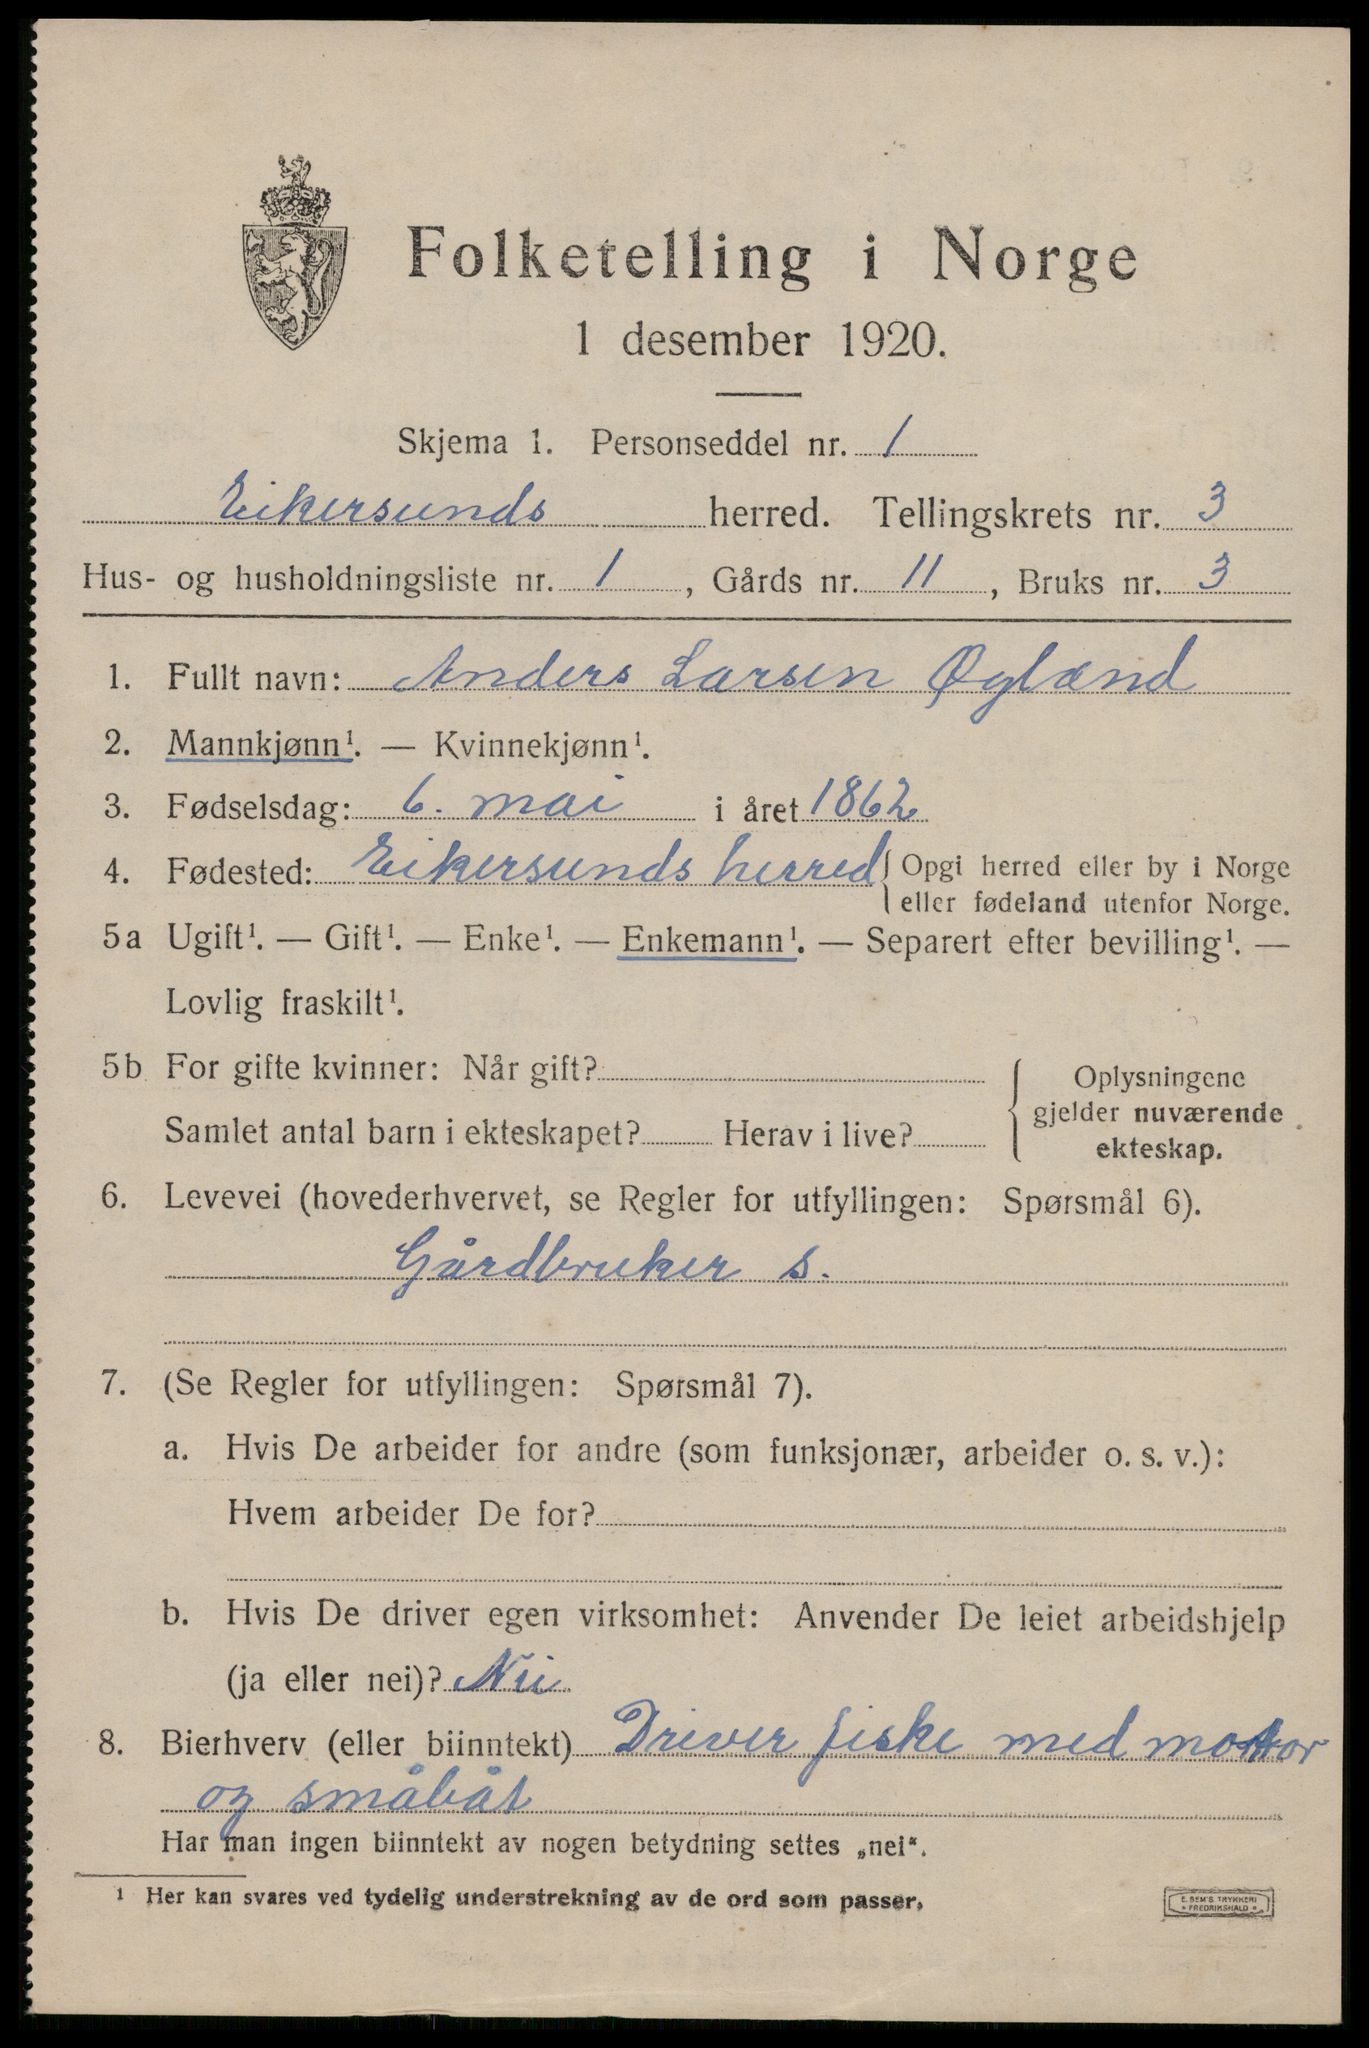 Folketelling i Norge
1 desember 1920.
Skjema 1. Personseddel nr. 1
Eikersunds herred. Tellingskrets nr. 3
Hus- og husholdningsliste nr. 1, Gårds nr. 11, Bruks nr. 3
1. Fullt navn: Anders Larsen Øglænd
2. Mannkjønn¹. — Kvinnekjønn¹.
3. Fødselsdag: 6. mai i året 1862
4. Fødested: Eikersunds herred { Opgi herred eller by i Norge
eller fødeland utenfor Norge.
5a Ugift¹. — Gift¹. — Enke¹. — Enkemann¹. — Separert efter bevilling¹. —
Lovlig fraskilt¹.
5b For gifte kvinner: Når gift?
Samlet antal barn i ekteskapet? Herav i live?
Oplysningene
gjelder nuværende
ekteskap.
6. Levevei (hovederhvervet, se Regler for utfyllingen: Spørsmål 6).
Gårdbruker s.
7. (Se Regler for utfyllingen: Spørsmål 7).
a. Hvis De arbeider for andre (som funksjonær, arbeider o. s. v.):
Hvem arbeider De for?
b. Hvis De driver egen virksomhet: Anvender De leiet arbeidshjelp
(ja eller nei)? Nei
8. Bierhverv (eller biinntekt) Driver fiske med mottor
og småbåt
Har man ingen biinntekt av nogen betydning settes „nei“.
¹ Her kan svares ved tydelig understrekning av de ord som passer.
E. SEM'S TRYKKERI
FREDRIKSHALD